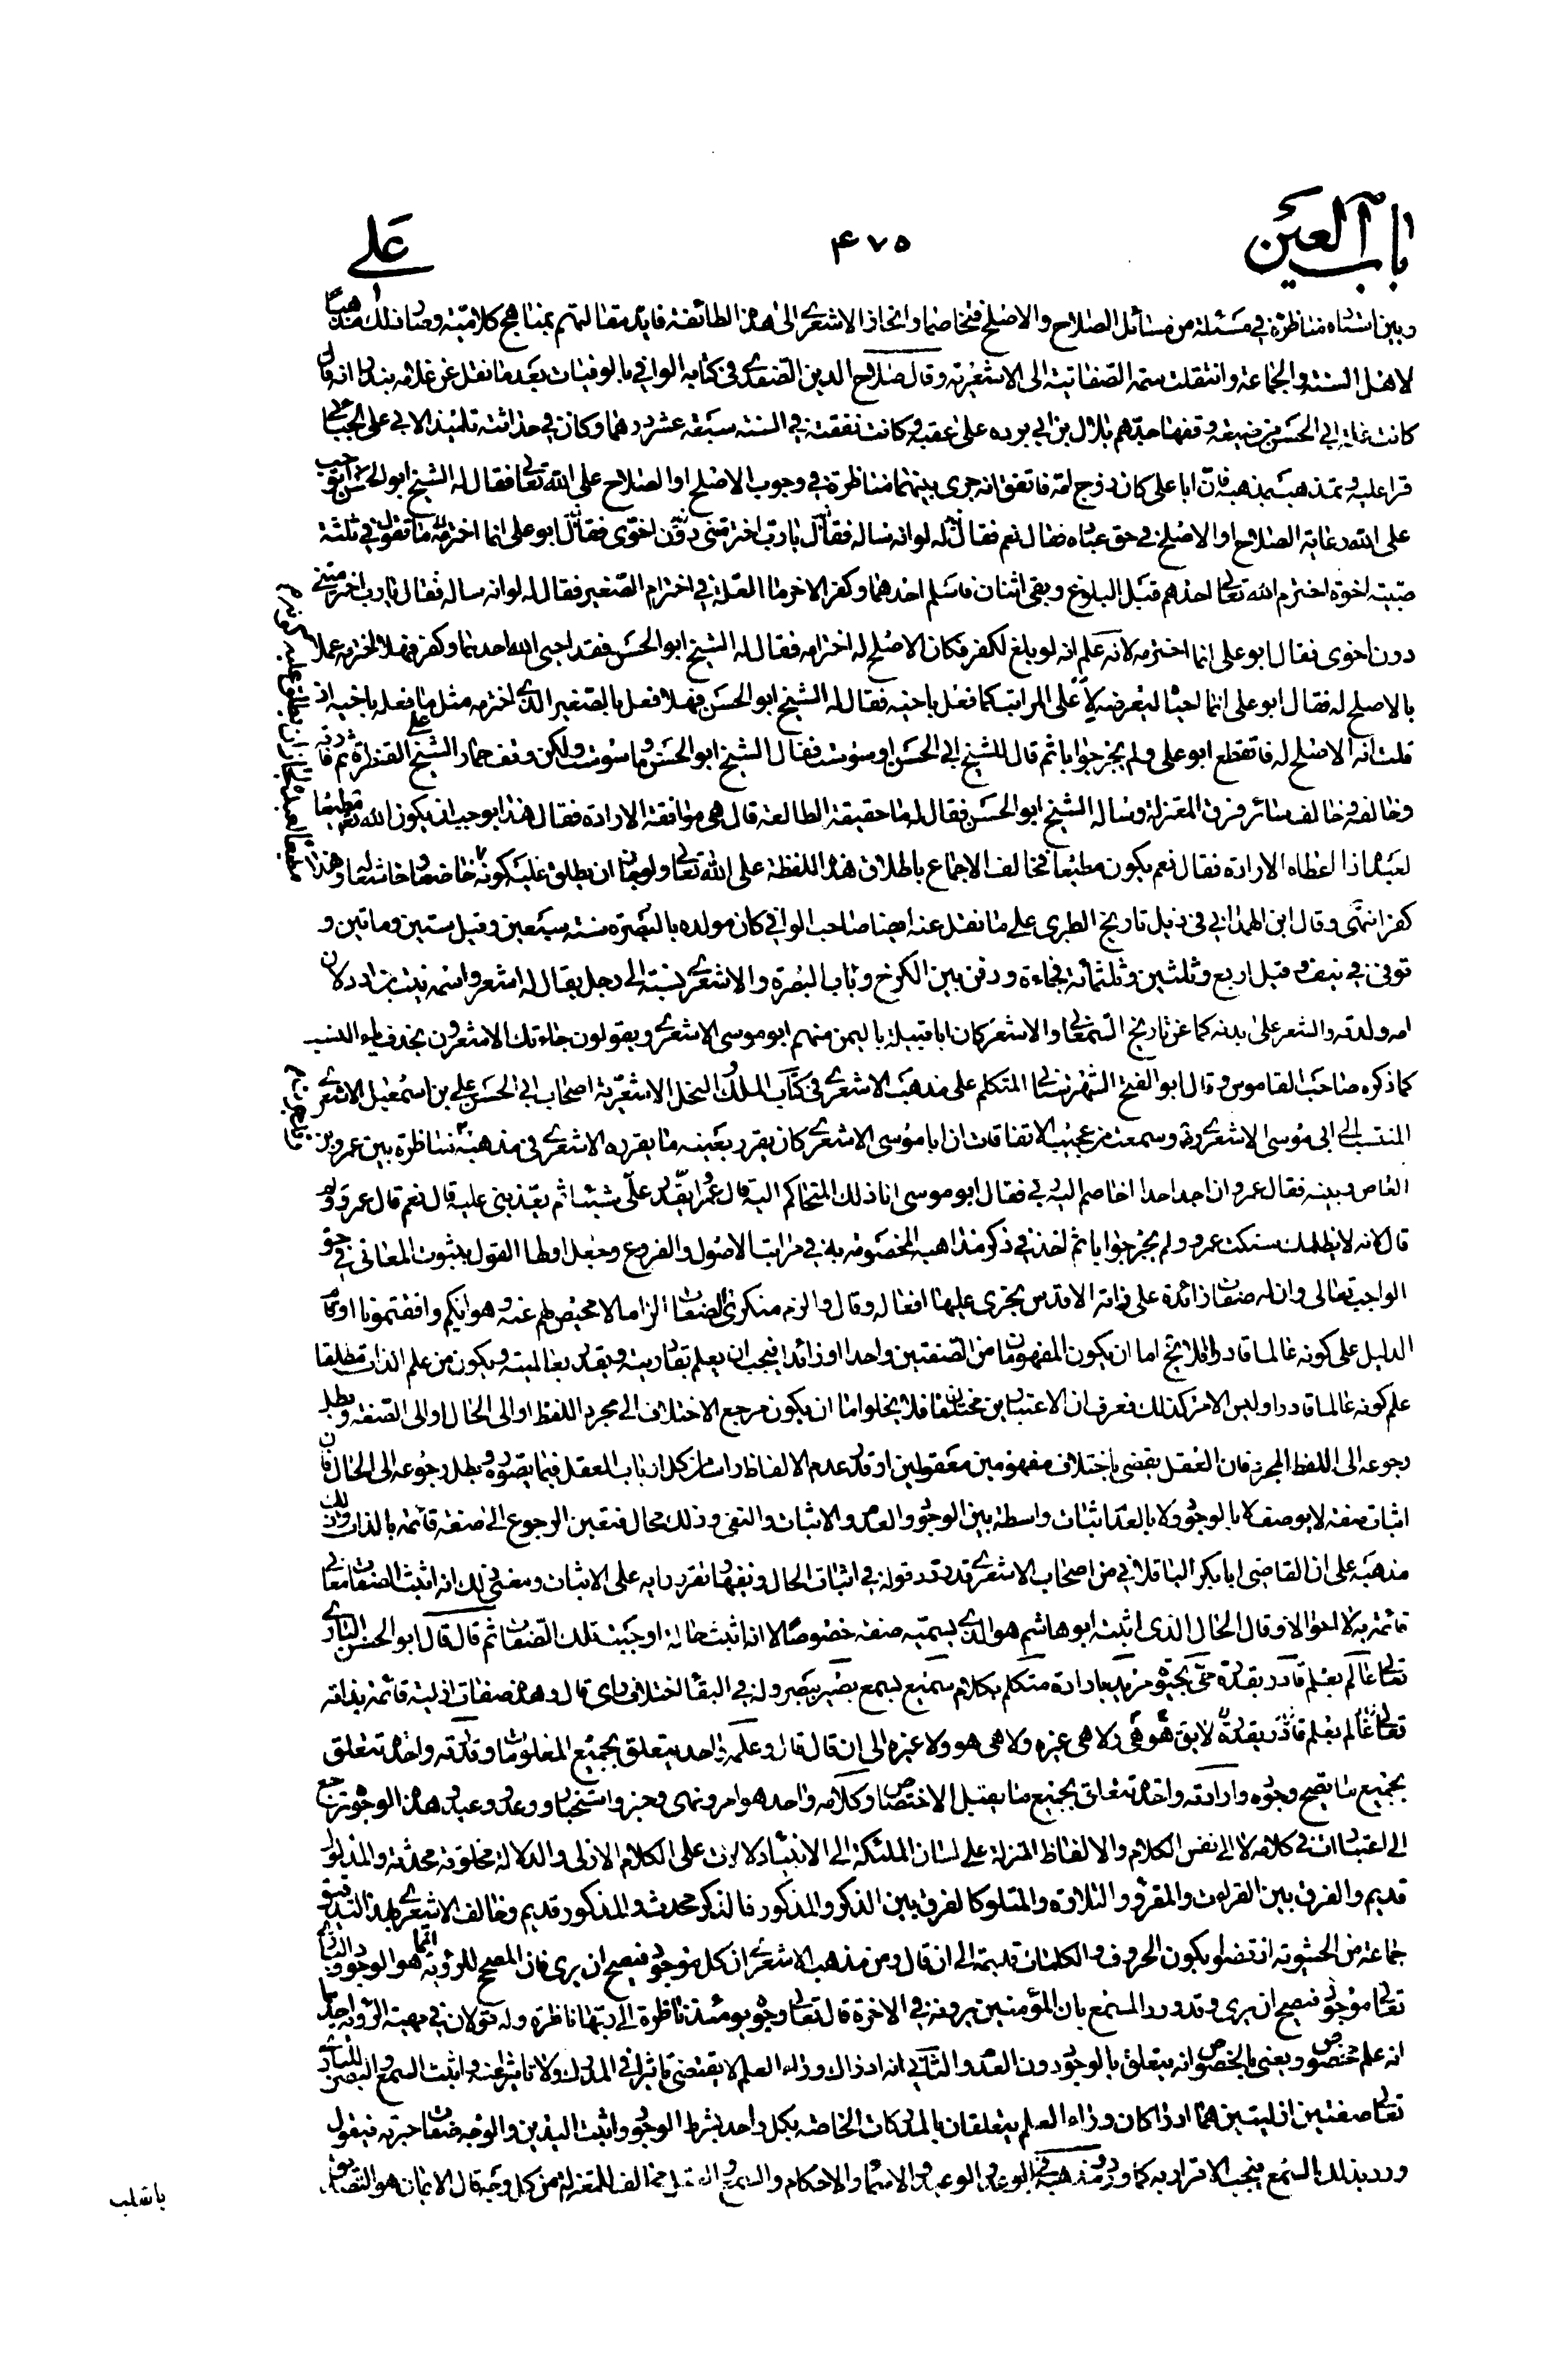 باب العين
۴۷۵
علي
وبين استاده مناظرة في مسئلة من مسائل الصلاح والاصلح فتخاصما وانحاز الاشعري الى هذه الطائفة فايد مقالتهم بمناهج كلامية وصار ذلك مذهبا
لاهل السنة والجماعة وانتقلت سمة الصفاتية الى الاشعرية وقال صلاح الدين الصفدي في كتابه الوافي بالوفيات بعد ما نقل عن غلامه بندار انه قال
كانت غلة ابي الحسن من ضيعة وقفها جدهم بلال بن ابي برده على عقبه وكانت نفقته في السنة سبعة عشر درهما وكان في حداثته تلميذا لابي علي الجبائي
قرا عليه وتمذهب بمذهبه فان ابا علي كان زوج امه فاتفق انه جرى بينهما مناظرة في وجوب الاصلح او الصلاح على الله تعالى فقال له الشيخ ابو الحسن اتوجب
على الله رعاية الصلاح او الاصلح في حق عباده فقال نعم فقال له ما تقول في ثلثة
صبية اخوة اخترم الله تعالى احدهم قبل البلوغ وبقى اثنان فاسلم احدهما وكفر الاخر ما العلة في اخترام الصغير فقال له لو انه ساله فقال يا رب اخترمتني
دون اخوى فقال ابو علي انما اخترمه لانه علم انه لو بلغ لكفر فكان الاصلح له اخترامه فقال له الشيخ ابو الحسن فقد احيى الله احدهما وكفر فهلا اخترمه عملا
بالاصلح له فقال ابو علي انما احياه ليعرضه لاعلى المراتب كما فعل باخيه فقال له الشيخ ابو الحسن فهلا فعل بالصغير الذي اخترمه مثل ما فعله باخيه اذ
قلت انه الاصلح له فانقطع ابو علي ولم يحر جوابا ثم قال للشيخ ابي الحسن اوسوست فقال الشيخ ابو الحسن ما وسوست ولكن وقف حمار الشيخ على القنطرة ثم فارقه
وخالفه وخالف سائر فرق المعتزلة وساله الشيخ ابو الحسن فقال له ما حقيقة الطاعة قال هي موافقة الارادة فقال هذا يوجب ان يكون الله تعالى مطيعا
لعبده اذا اعطاه الارادة فقال نعم يكون مطيعا فخالف الاجماع باطلاق هذه اللفظة على الله تعالى ولو جاز ان يطلق عليه كونه خاضعا خاشعا وهذا
كفر انتهى وقال ابن الهمداني في ذيل تاريخ الطبري على ما نقل عنه ايضا صاحب الوافي كان مولده بالبصرة سنة سبعين وقيل ستين ومائتين و
توفى في نيف وقيل اربع وثلثين وثلثمائة فجاءة ودفن بين الكرخ وباب البصرة والاشعري نسبة الى رجل يقال له اشعر واسمه نبت بن ادد لان
امه ولدته والشعر على بدنه كما عن تاريخ السمعاني والاشعر كان ابا قبيلة باليمن منهم ابو موسى الاشعري ويقولون جاءتك الاشعرون بحذف ياء النسب
كما ذكره صاحب القاموس وقال ابو الفتح الشهرستاني المتكلم على مذهب الاشعري في كتاب الملل والنحل الاشعرية اصحاب ابي الحسن علي بن اسمعيل الاشعري
المنتسب الى ابي موسى الاشعري وسمعت من عجيب الاتفاقات ان ابا موسى الاشعري كان يقرر بعينه ما يقرره الاشعري في مذهبه مناظرة بين عمرو بن
العاص وبينه فقال عمرو ان اجد احدا اخاصم اليه ربي فقال ابو موسى انا ذلك المتحاكم اليه قال عمرو يقدر علي شيئا ثم يعذبني عليه قال نعم قال عمرو ولم
قال لانه لا يظلمك فسكت عمرو ولم يحر جوابا ثم اخذ في ذكر مذاهبه المخصوصة به في مراتب الاصول والفروع وجعل اولها القول بثبوت المعاني في حق
الواجب تعالى وان له صفات زائدة على ذاته الاقدس يجرى عليها افعاله وقال والزم منكري الصفات الزاما لا محيص لهم عنه وهو انكم وافقتمونا او قام
الدليل على كونه عالما قادرا فلا يخ اما ان يكون المفهومان من الصفتين واحدا او زائدا فيجب ان يعلم بقادريته ويقدر بعالميته ويكون من علم الذات مطلقا
علم كونه عالما قادرا وليس الامر كذلك فعرف ان الاعتبارين مختلفان فلا يخلو اما ان يكون مرجع الاختلاف الى مجرد اللفظ او الى الحال او الى الصفة وبطل
رجوعه الى اللفظ المجرد فان العقل يقضى باختلاف مفهومين معقولين او قدر عدم الالفاظ راسا من كل ارباب العقل فيما يتصوره وبطل رجوعه الى الحال فان
اثبات صفة لا يوصف لا بالوجود ولا بالعدم اثبات واسطة بين الوجود والعدم والاثبات والنفى وذلك محال فتعين الرجوع الى صفة قائمة بالذات وذلك
مذهبه على ان القاضي ابا بكر الباقلاني من اصحاب الاشعري قد ردد قوله في اثبات الحال ونفيها وتقرر رايه على الاثبات ومع ذلك انه اثبت الصفات معاني
قائمة به لا احوالا وقال الحال الذي اثبته ابو هاشم هو الذي يسميه صفة خصوصا لا انه اثبت حالة اوجبت تلك الصفات ثم قال قال ابو الحسن الباري
تعالى عالم بعلم قادر بقدرة حي بحيوة مريد بارادة متكلم بكلام سميع بسمع بصير ببصر وله في البقاء اختلاف راى قال وهذه صفات ازلية قائمة بذاته
تعالى لا يق هي هو ولا هي غيره ولا هي هو ولا غيره الى ان قال قال وعلمه واحد يتعلق بجميع المعلومات وقدرته واحدة تتعلق
بجميع ما يصح وجوده وارادته واحدة تتعلق بجميع ما يقبل الاختصاص وكلامه واحد هو امر ونهى وخبر واستخبار ووعد ووعيد هذه الوجوه ترجع
الى اعتبارات في كلامه لا الى نفس الكلام والالفاظ المنزلة على لسان الملئكة الى الانبياء دلالات على الكلام الازلي والدلالة مخلوقة محدثة والمدلول
قديم والفرق بين القرائة والمقرو والتلاوة والمتلو كالفرق بين الذكر والمذكور فالذكر محدث والمذكور قديم وخالف الاشعري بهذا التدقيق
جماعة من الحشوية اذ قضوا بكون الحروف والكلمات قديمة الى ان قال ومن مذهب الاشعري ان كل موجود فيصح ان يرى فان المصحح للرؤية انما هو الوجود والباري
تعالى موجود فيصح ان يرى وقد ورد السمع بان المؤمنين يرونه في الاخرة قال تعالى وجوه يومئذ ناظرة الى ربها ناظرة وله قولان في مهية الرؤية احدهما
انه علم مخصوص ويعنى بالخصوص انه يتعلق بالوجود دون العدم والثاني انه ادراك وراء العلم لا يقتضي تاثيرا في المدرك ولا تاثرا عنه واثبت السمع والبصر للباري
تعالى صفتين ازليتين هما ادراكان وراء العلم يتعلقان بالمدركات الخاصة بكل واحد بشرط الوجود واثبت اليدين والوجه صفات خبرية فيقول
ورد بذلك السمع فيجب الاقرار به كما ورد ومذهبه في الوعد والوعيد والاسماء والاحكام والسمع والعقل مخالف للمعتزلة من كل وجه قال الايمان هو التصديق
بالقلب